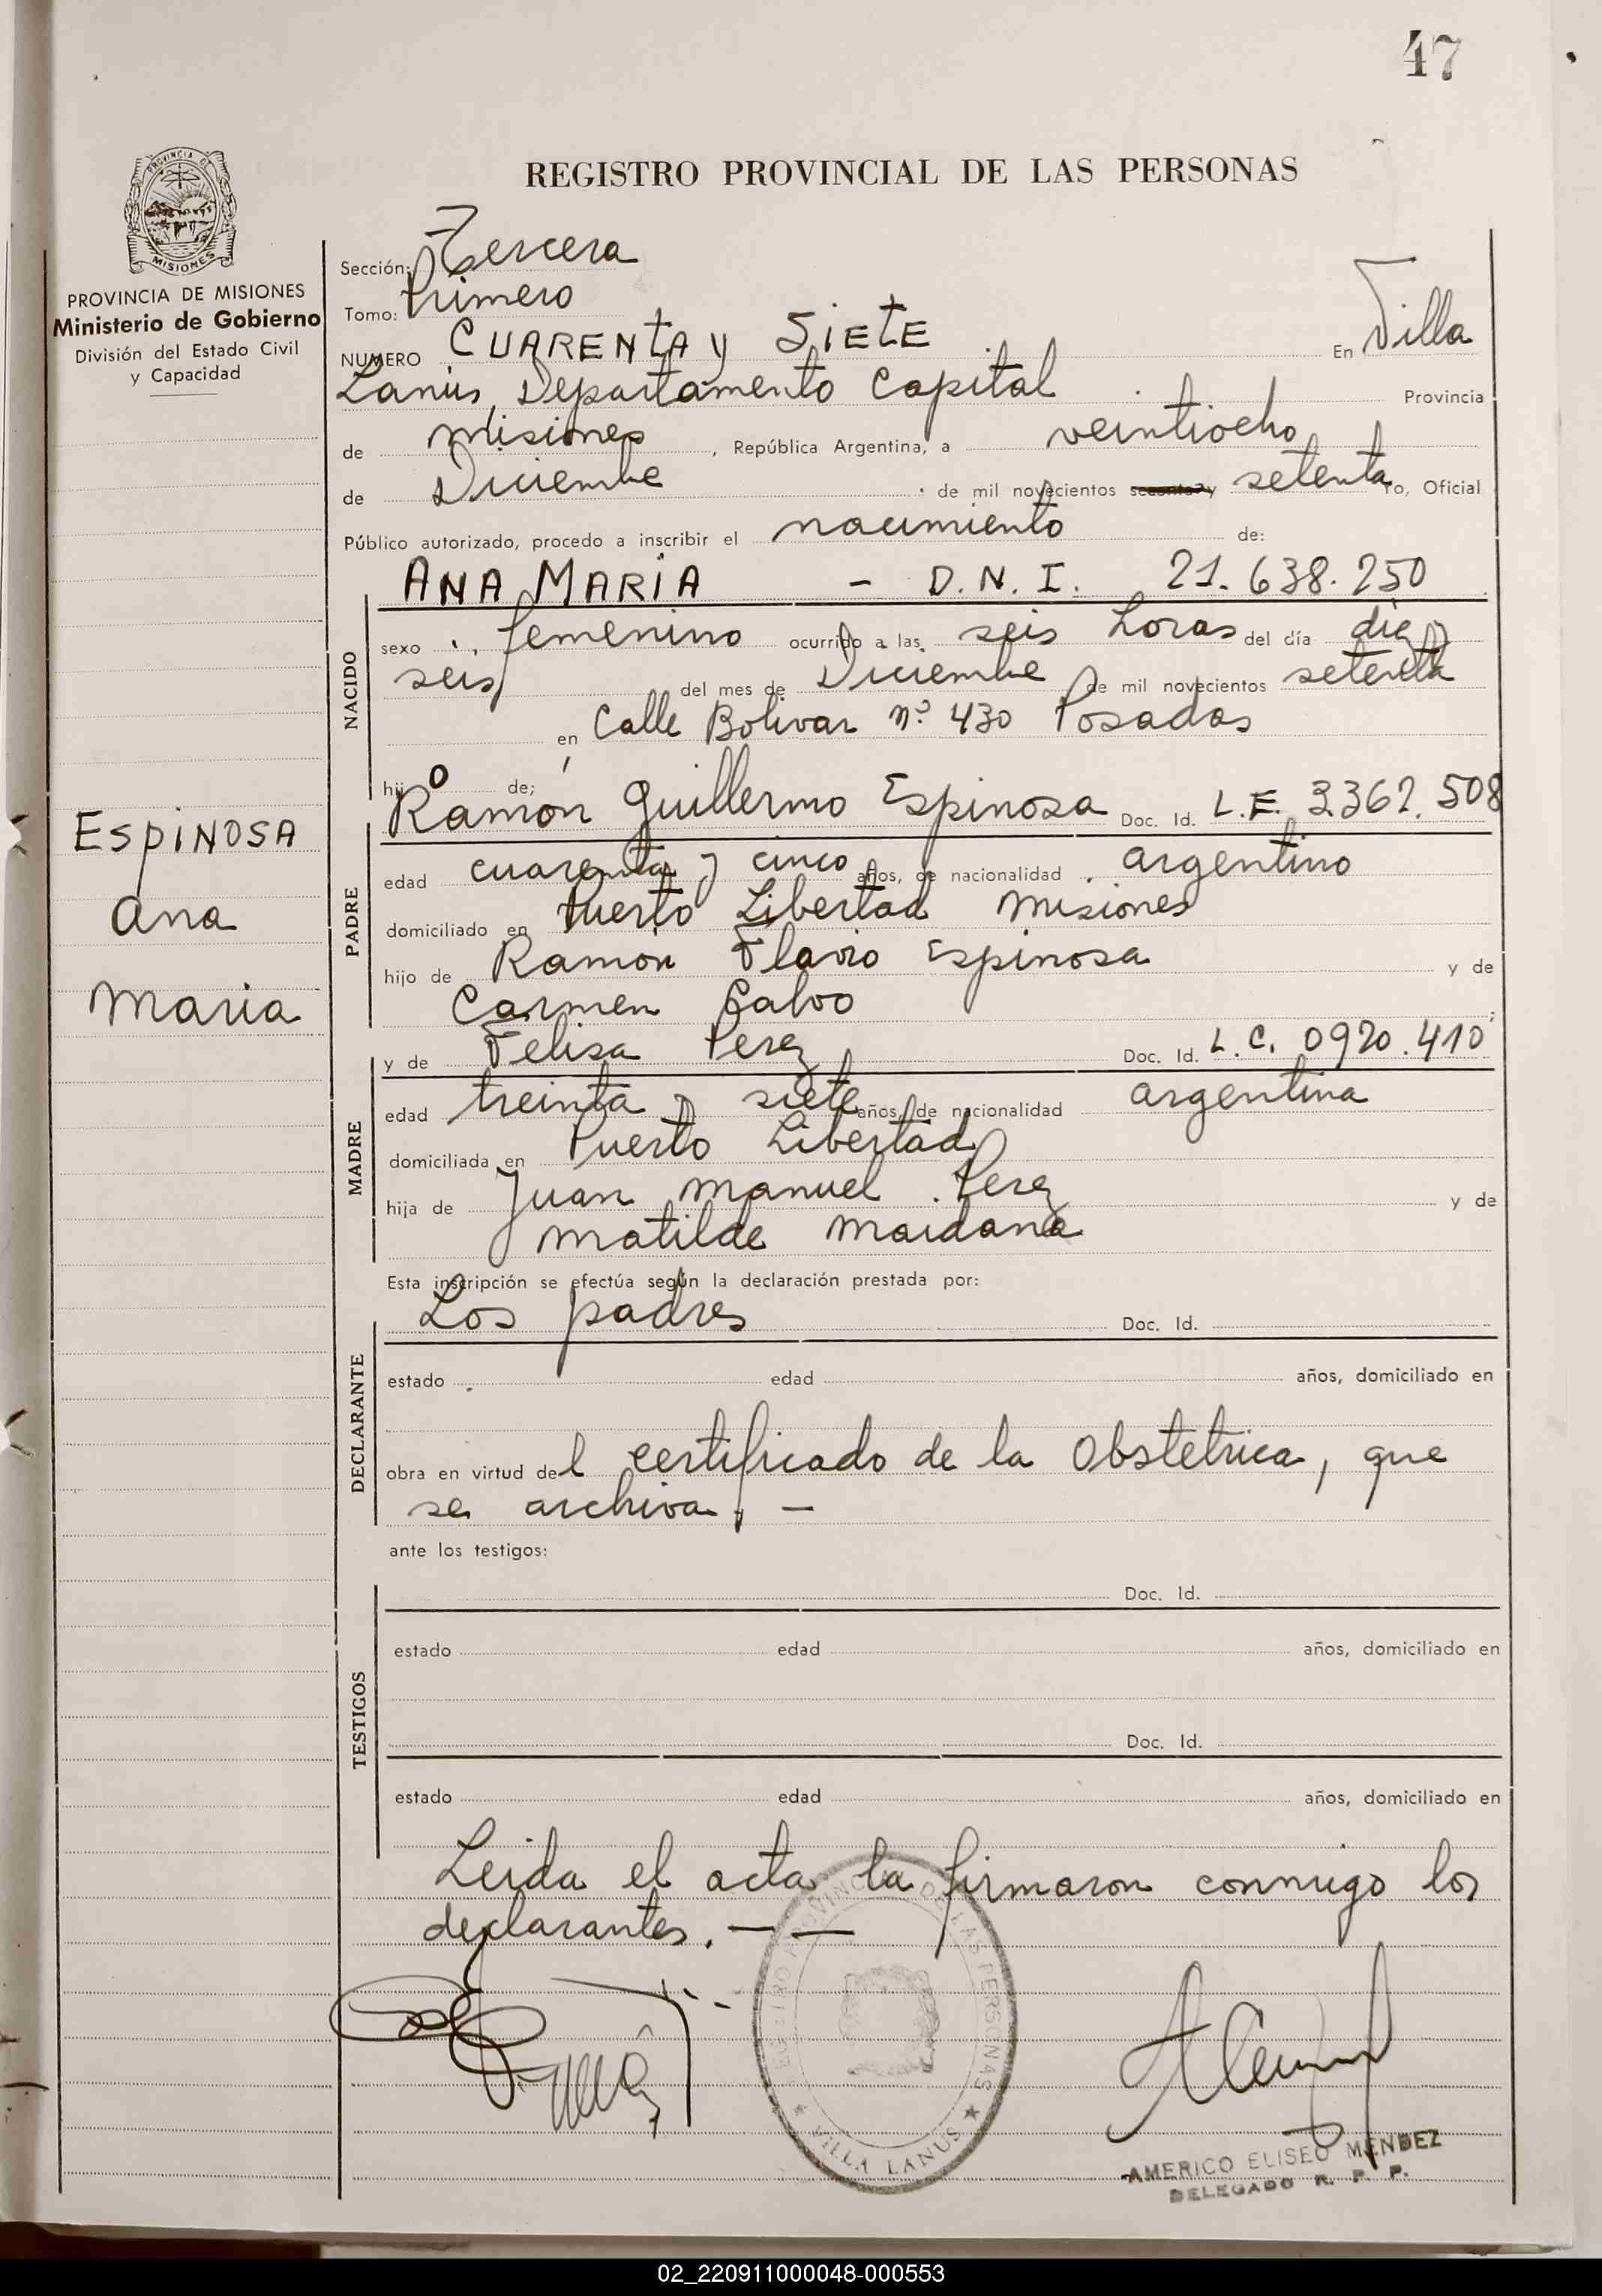 47
REGISTRO PROVINCIAL DE LAS PERSONAS
PROVINCIA DE
MISIONES
PROVINCIA DE MISIONES
Ministerio de Gobierno
División del Estado Civil
y Capacidad
Sección: Tercera
Tomo: Primero
NUMERO CUARENTA Y SIETE En Villa
Lanús, Departamento Capital Provincia
de Misiones, República Argentina, a veintiocho
de Diciembre de mil novecientos setenta Yo, Oficial
Público autorizado, procedo a inscribir el nacimiento de:
ANA MARIA - D.N.I. 21.638.250
NACIDO
sexo femenino ocurrido a las seis horas del día diez y
seis del mes de Diciembre de mil novecientos setenta
en Calle Bolivar nº 430 Posadas
hijo de;
ESPINOSA
Ana
Maria
PADRE
Ramón Guillermo Espinosa Doc. Id. L.E. 3362.508
edad cuarenta y cinco años, de nacionalidad argentino
domiciliado en Puerto Libertad Misiones
hijo de Ramón Flavio Espinosa y de
Carmen Galvo;
MADRE
y de Felisa Perez Doc. Id. L.C. 0920.410
edad treinta y siete años, de nacionalidad argentina
domiciliada en Puerto Libertad
hija de Juan Manuel Perez y de
Matilde Maidana
Esta inscripción se efectúa según la declaración prestada por:
DECLARANTE
Los padres Doc. Id.
estado edad años, domiciliado en
obra en virtud del certificado de la Obstetrica, que
se archiva. —
ante los testigos:
TESTIGOS
Doc. Id.
estado edad años, domiciliado en
Doc. Id.
estado edad años, domiciliado en
Leida el acta la firmaron conmigo los
declarantes. — —
REGISTRO PROVINCIAL DE LAS PERSONAS
VILLA LANUS
AMERICO ELISEO MENDEZ
DELEGADO R. P. P.
02_220911000048-000553